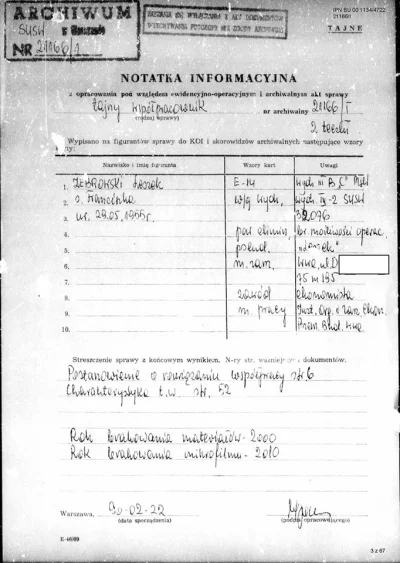 IPN BU 001134/4722
211661
TAJNE
ARCHIWUM
SUSW
w Warszawie
NR 21166/1
NOTATKA INFORMACYJNA
z opracowania pod względem ewidencyjno-operacyjnym i archiwalnym akt sprawy
tajny współpracownik nr archiwalny 21166/I
(rodzaj sprawy)
2 teczki
Wypisano na figurantów sprawy do KOI i skorowidzów archiwalnych następujące wzory
Nazwisko i imię figuranta Wzory kart Uwagi
1. ŻEBROWSKI Leszek E-14
2. s. Franciszka
3. ur. 29.05.1955r. 32096
4. br. możliwości operac.
5. pseud.
6. m. zam.
7. 75 m 195
8. zawód ekonomista
9. m. pracy
10.
Streszczenie sprawy z końcowym wynikiem. N-ry str. ważniejszych dokumentów.
Postanowienie o rozwiązaniu współpracy str. 6
Charakterystyka t.w. str. 52
Rok brakowania materiałów - 2000
Rok brakowania mikrofilmu - 2010
Warszawa, 90-02-22
(data sporządzenia) (podpis opracowującego)
E-46/69
3 z 67